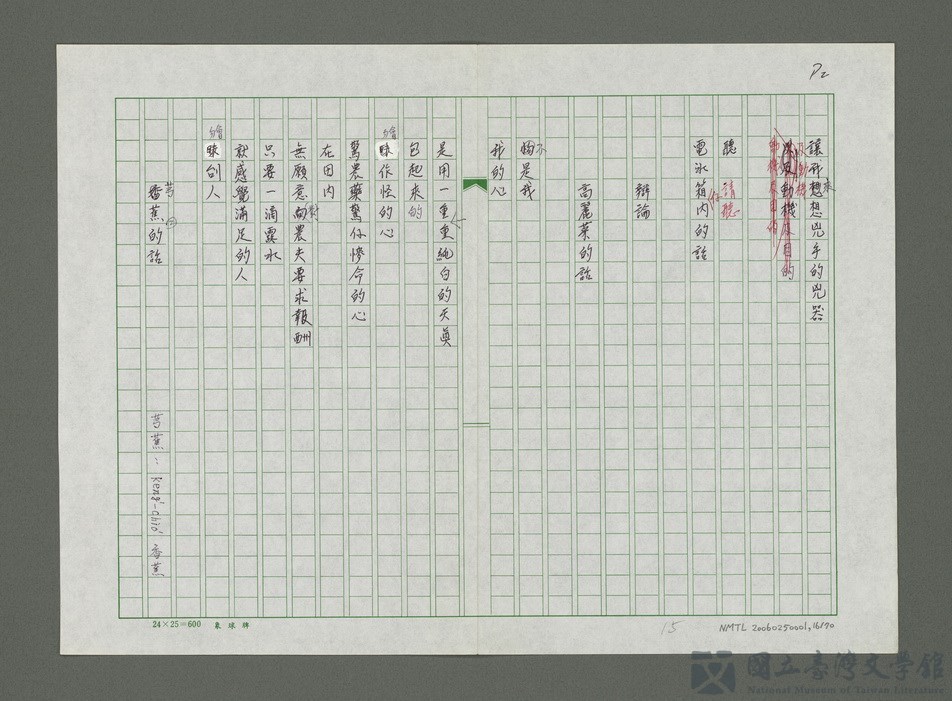 P2
讓我想想兇手的兇器
來
及動機
聽
請聽
電冰箱內的話
辯論
高麗菜的話
物是我
不
我的心
是用一重重純白的天真
包起來的
勿會
昧作怪的心
罵農藥驚仔慘令的心
在田內
無願意向農夫要求報酬
對
只要一滴露水
就感覺滿足的人
勿會
昧创人
香蕉的話
芎
芎蕉：keng-chio 香蕉
24×25=600 象球牌
15
NMTL 20060250001,16/70
國立臺灣文學館
National Museum of Taiwan Literature